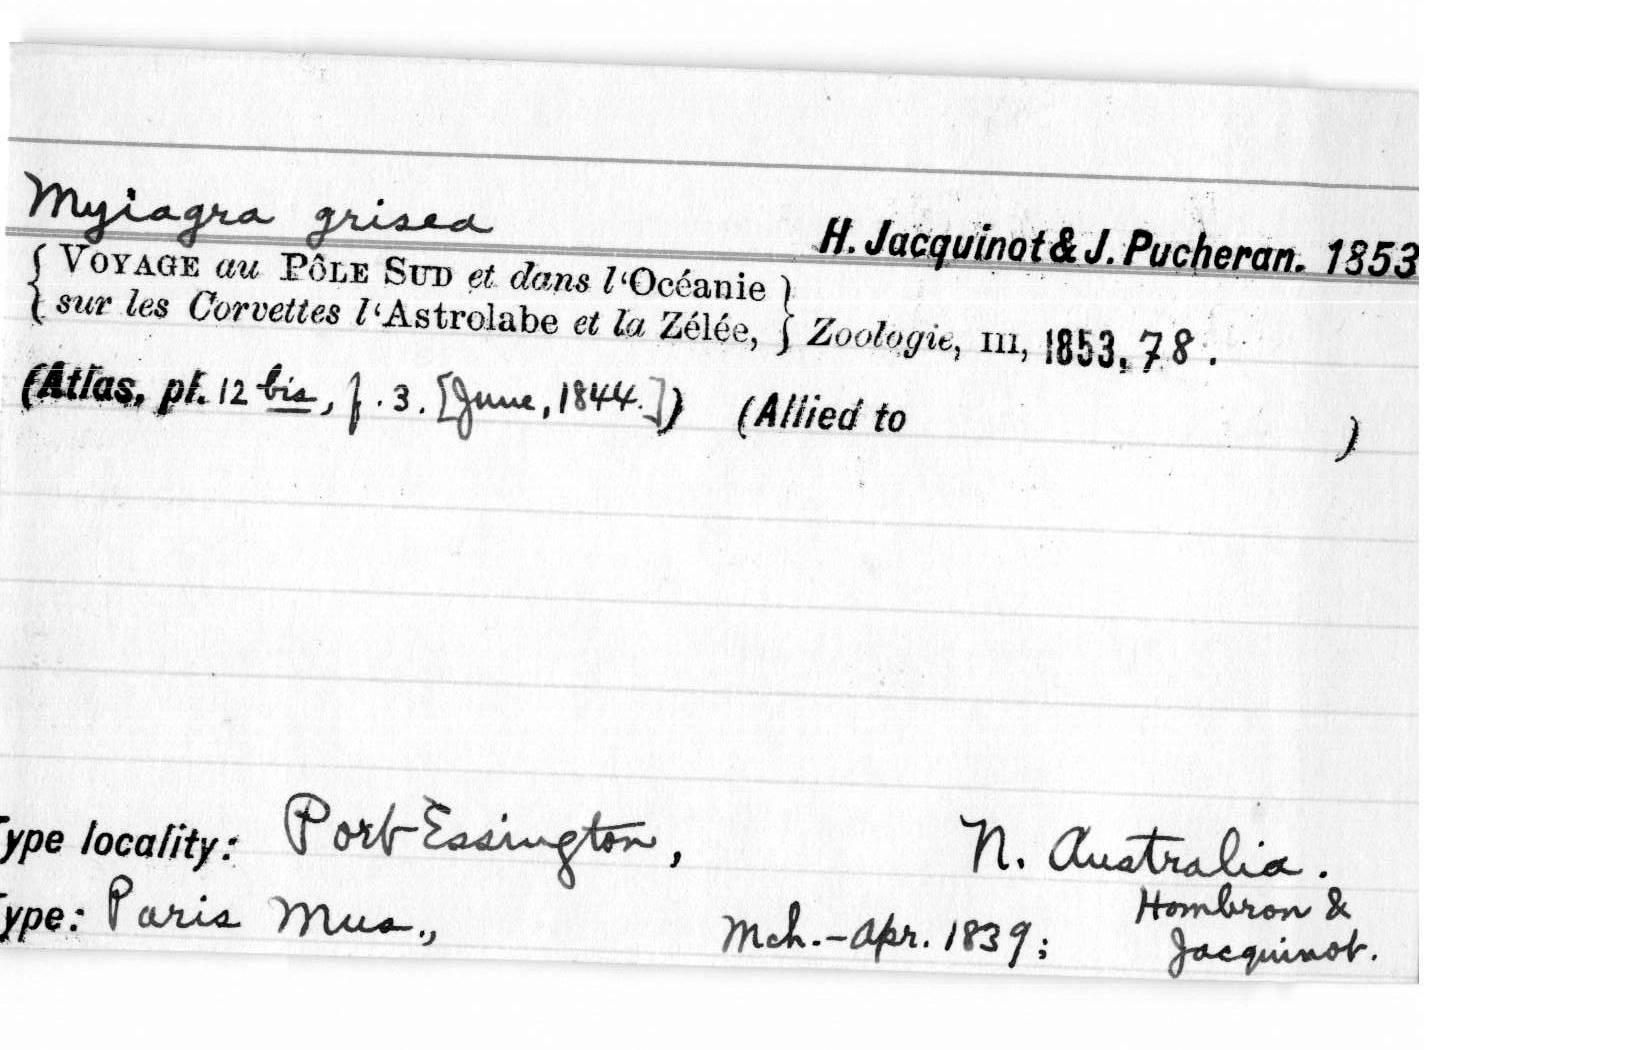 Myiagra grisea H. Jacquinot & J. Pucheran. 1853
{ VOYAGE au PÔLE SUD et dans l‘Océanie }
{ sur les Corvettes l‘Astrolabe et la Zélée, } Zoologie, III, 1853, 78.
(Atlas, pl. 12 bis, f. 3. [June, 1844.]) (Allied to )
ype locality: Port Essington, N. Australia.
ype: Paris Mus., Mch.-Apr. 1839; Hombron &
Jacquinot.